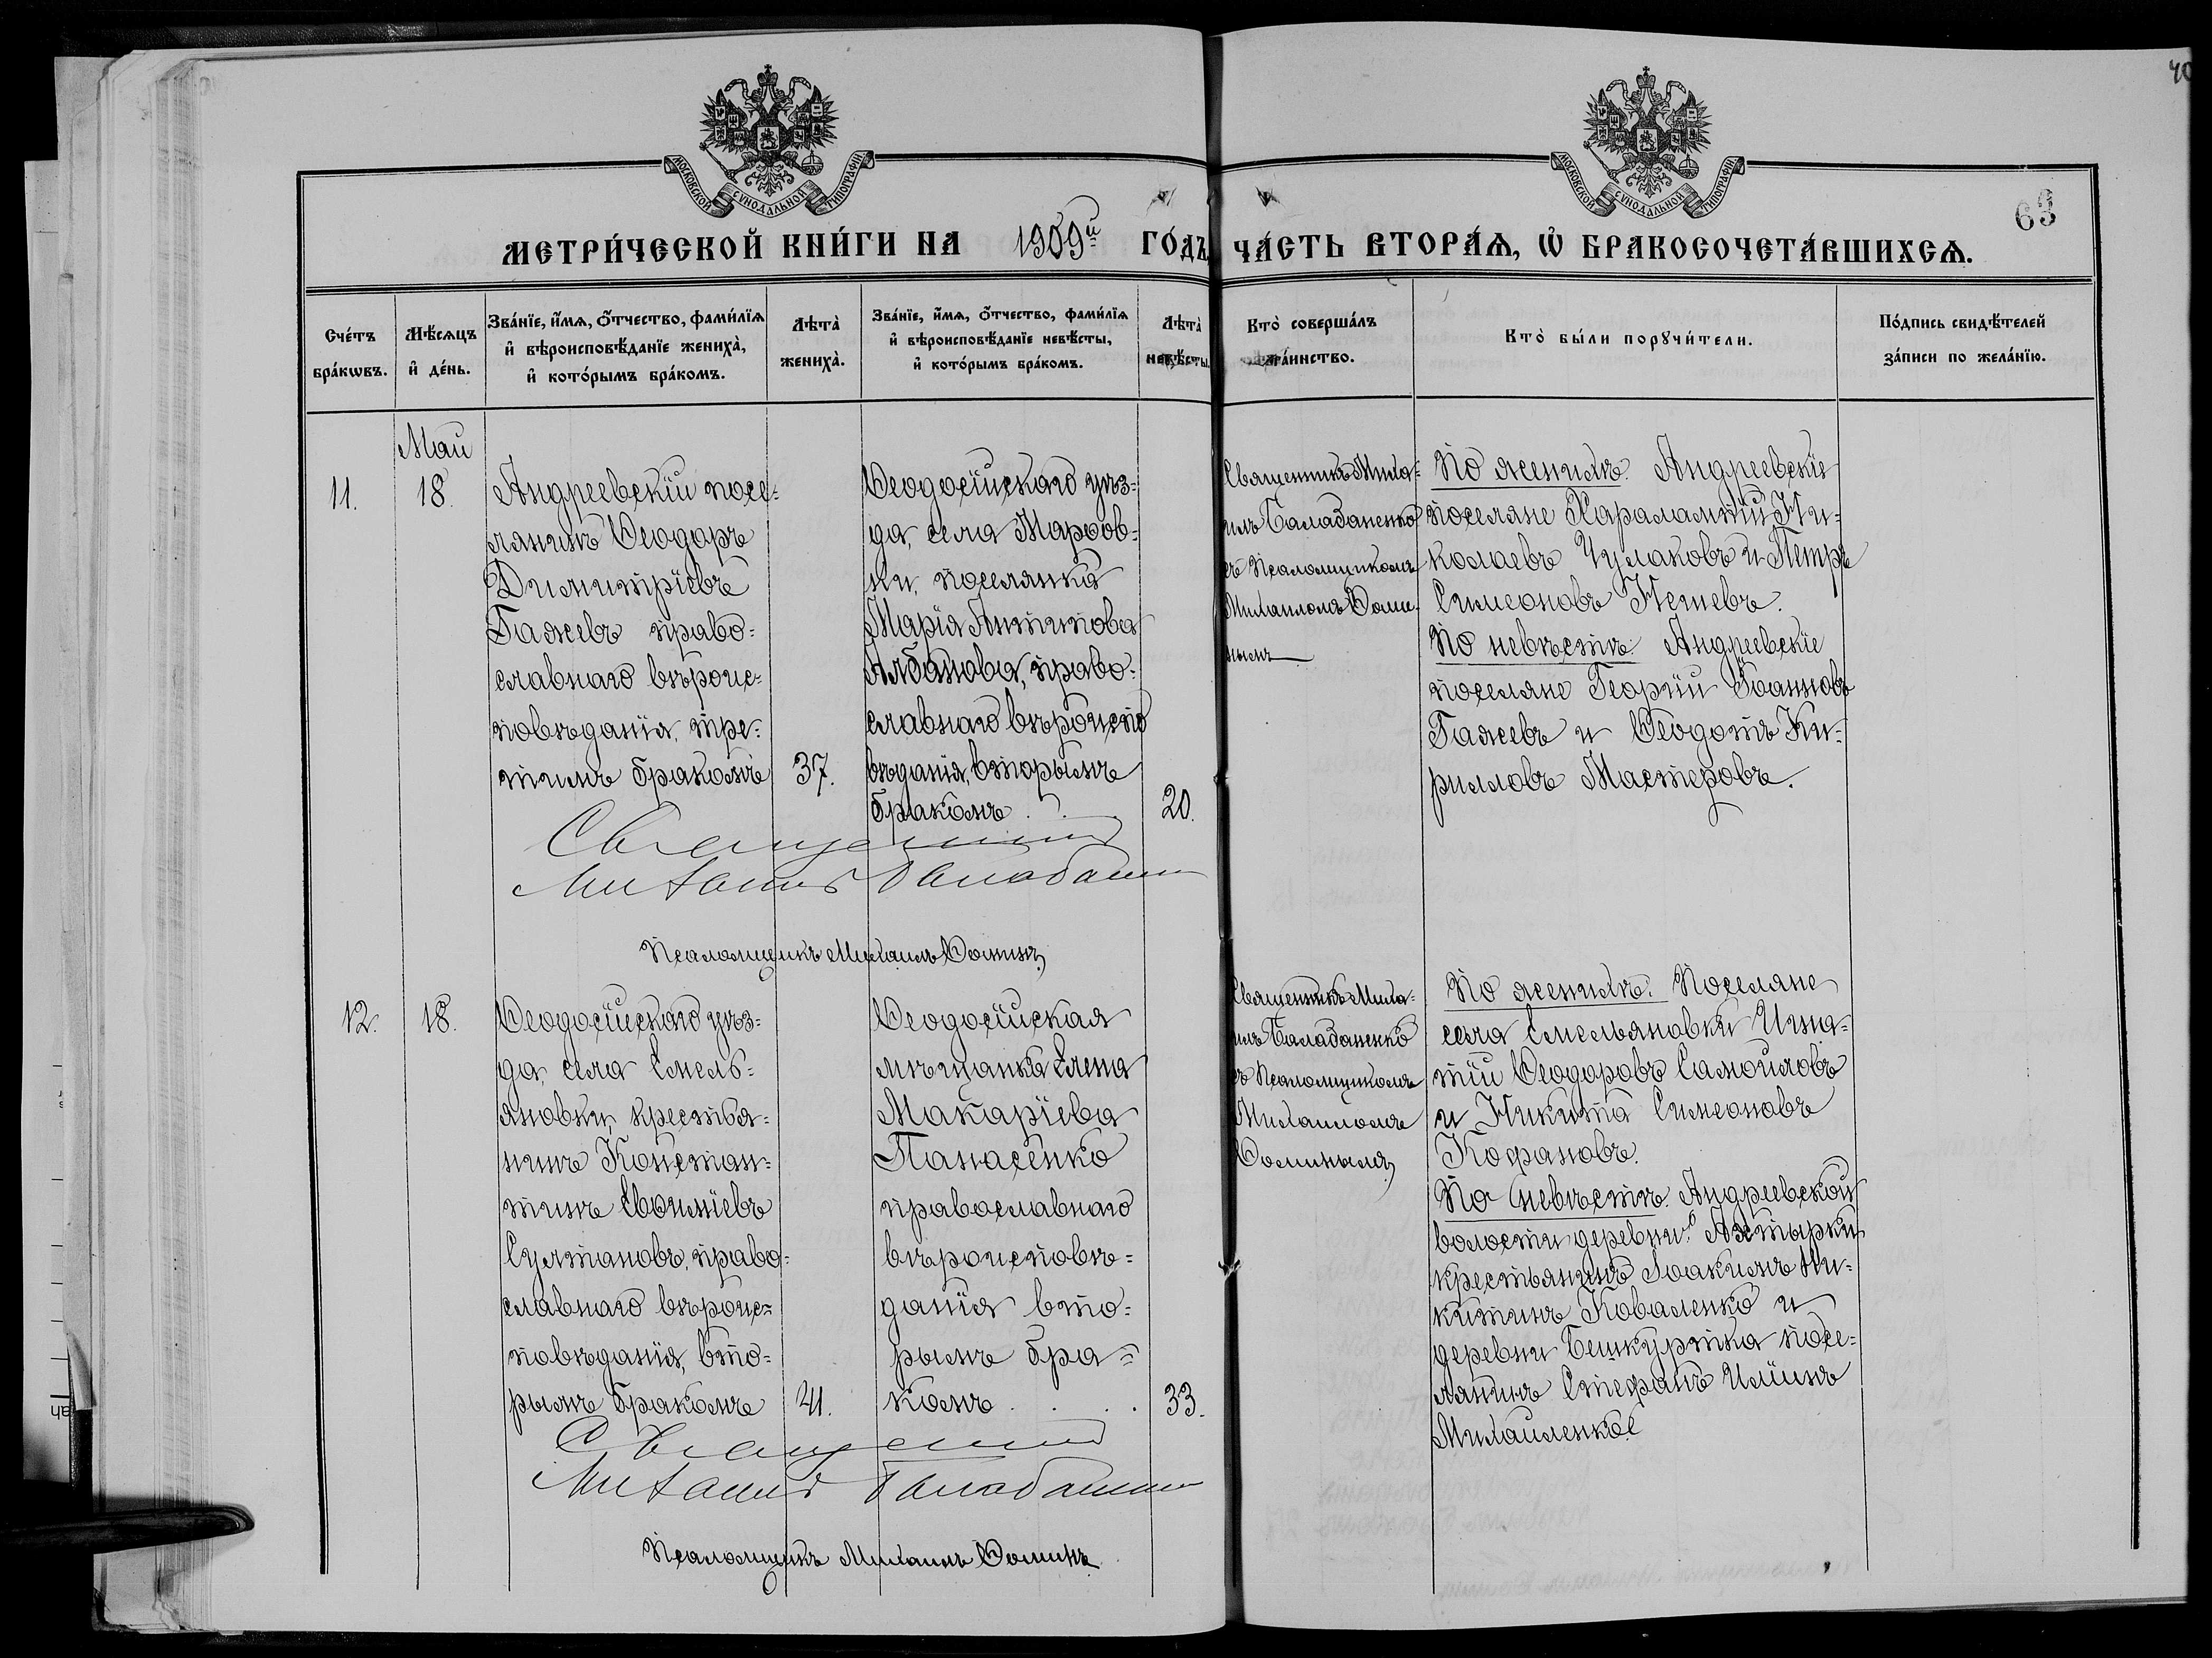 40
63
МОСКОВСКОЙ СУНОДАЛЬНОЙ ТИПОГРАФІИ
МОСКОВСКОЙ СУНОДАЛЬНОЙ ТИПОГРАФІИ
МЕТРИ́ЧЕСКОЙ КНИ́ГИ НА 1909й ГО́ДЪ, ЧА́СТЬ ВТОРА́Ѧ, Ѽ БРАКОСОЧЕТА́ВШИХСѦ.
Сче́тъ
бра́кѡвъ.
Мѣ́сѧцъ
и҆ де́нь.
Зва́нїе, и҆́мѧ, ѻ҆́тчество, фами́лїѧ
и҆ вѣроисповѣ́данїе жениха̀,
и҆ кото́рымъ бра́комъ.
Лѣта̀
жениха̀.
Зва́нїе, и҆́мѧ, ѻ҆́тчество, фами́лїѧ
и҆ вѣроисповѣ́данїе невѣ́сты,
и҆ кото́рымъ бра́комъ.
Лѣта̀
невѣ́сты.
Кто̀ соверша́лъ
та́инство.
Кто̀ бы́ли порꙋчи́тели.
По́дпись свидѣ́телей
за́писи по жела́нїю.
Май
11.
18.
Андреевскій посе-
лянинъ Ѳеодоръ
Димитріевъ
Гажевъ право-
славнаго вѣроис-
повѣданія, тре-
тимъ бракомъ
37.
Ѳеодосійскаго уѣз-
да, села Марѳов-
ки, поселянка
Марія Антипова
Албатова, право-
славнаго вѣроиспо
вѣданія, вторымъ
бракомъ . .
20.
Священникъ Миха-
илъ Балабаненко
съ Псаломщикомъ
Михаиломъ Ѳоми-
нымъ
По женихѣ: Андреевскіе
поселяне Харалампій Ни-
колаевъ Чулаковъ и Петръ
Симеоновъ Нешевъ.
По невѣстѣ: Андреевскіе
поселяне Георгій Іоанновъ
Гажевъ и Ѳеодотъ Ки-
рилловъ Мастеровъ.
Священникъ
Михаилъ Балабаненко
Псаломщикъ Михаилъ Ѳоминъ
12.
18.
Ѳеодосійскаго уѣз-
да, села Емель-
яновки, крестья-
нинъ Констан-
тинъ Евѳиміевъ
Султановъ, право-
славнаго вѣроис-
повѣданія, вто-
рымъ бракомъ
41.
Ѳеодосійская
мѣщанка Елена
Макаріева
Панасенко
православнаго
вѣроисповѣ-
данія вто-
рымъ бра-
комъ . . . .
33.
Священникъ Миха-
илъ Балабаненко
съ Псаломщикомъ
Михаиломъ
Ѳоминымъ
По женихѣ: Поселяне
села Емельяновки Игна-
тій Ѳеодоровъ Самойловъ
и Никита Симеоновъ
Кофановъ.
По невѣстѣ: Андреевской
волости деревни Ахтырки
крестьянинъ Іоакимъ Ни-
китинъ Коваленко и
деревни Бешкуртка посе-
лянинъ Стефанъ Иліинъ
Михайленко
Священникъ
Михаилъ Балабаненко
Псаломщикъ Михаилъ Ѳоминъ